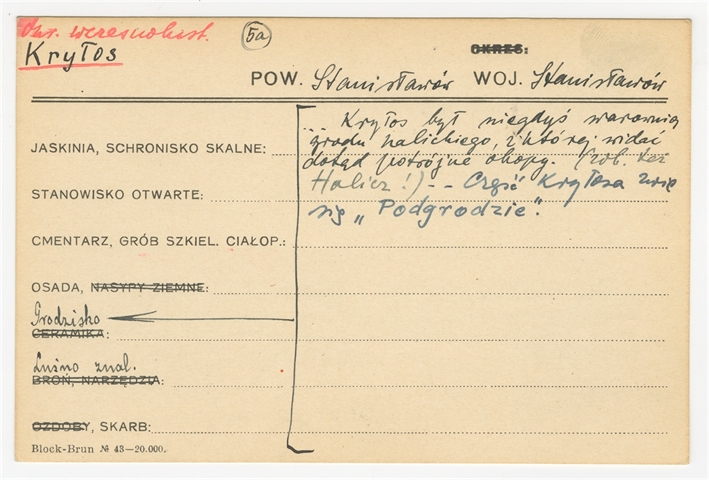 Okr. wczesnohist. 5a
Kryłos OKRES:
POW. Stanisławów WOJ. Stanisławów
... Kryłos był niegdyś warownią
grodu halickiego, z której widać
JASKINIA, SCHRONISKO SKALNE:
dotąd potrójne okopy. (zob. też
STANOWISKO OTWARTE: Halicz!) -- Część Kryłosa zwie
się „Podgrodzie".
CMENTARZ, GRÓB SZKIEL. CIAŁOP.:
OSADA, NASYPY ZIEMNE:
Grodzisko
CERAMIKA:
Luźno znal.
BROŃ, NARZĘDZIA:
OZDOBY, SKARB:
Block-Brun № 43—20.000.